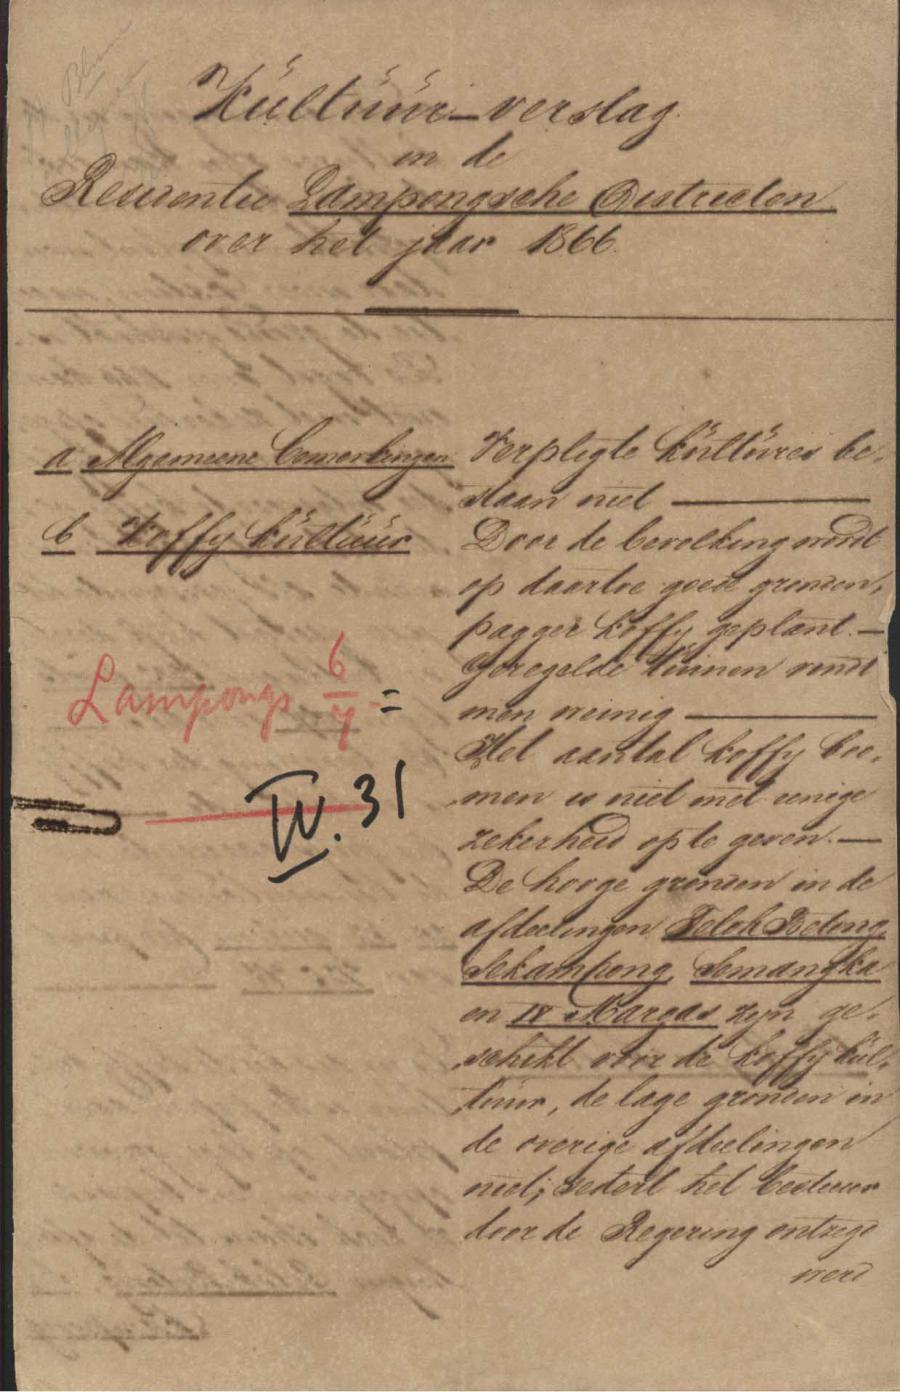 Kultuur-verslag
in de
Residentie Lampongsche Districten
over het jaar 1866.
a Algemeene bemerkingen
b Koffy kultuur
Lampongs 6/7 =
IV. 31
Verpligte kultures be-
staan niet
Door de bevolking wordt
op daartoe goede gronden,
pagger koffy geplant. —
Geregelde tuinen vindt
men weinig
Het aantal koffy boo-
men is niet met eenige
zekerheid op te geven. —
De hooge gronden in de
afdeelingen Telok Betong,
Sekampong, Semangka
en IV Margas zyn ge-
schikt voor de koffy kul-
tuur, de lage gronden in
de overige afdeelingen
niet; sedert het bestuur
door de Regering
werd